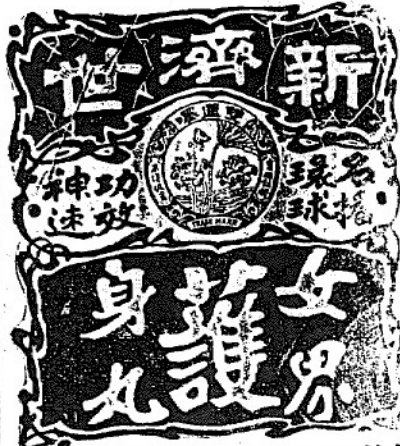 新濟世
名振環球
TRADE MARK
功效神速
女界護身丸